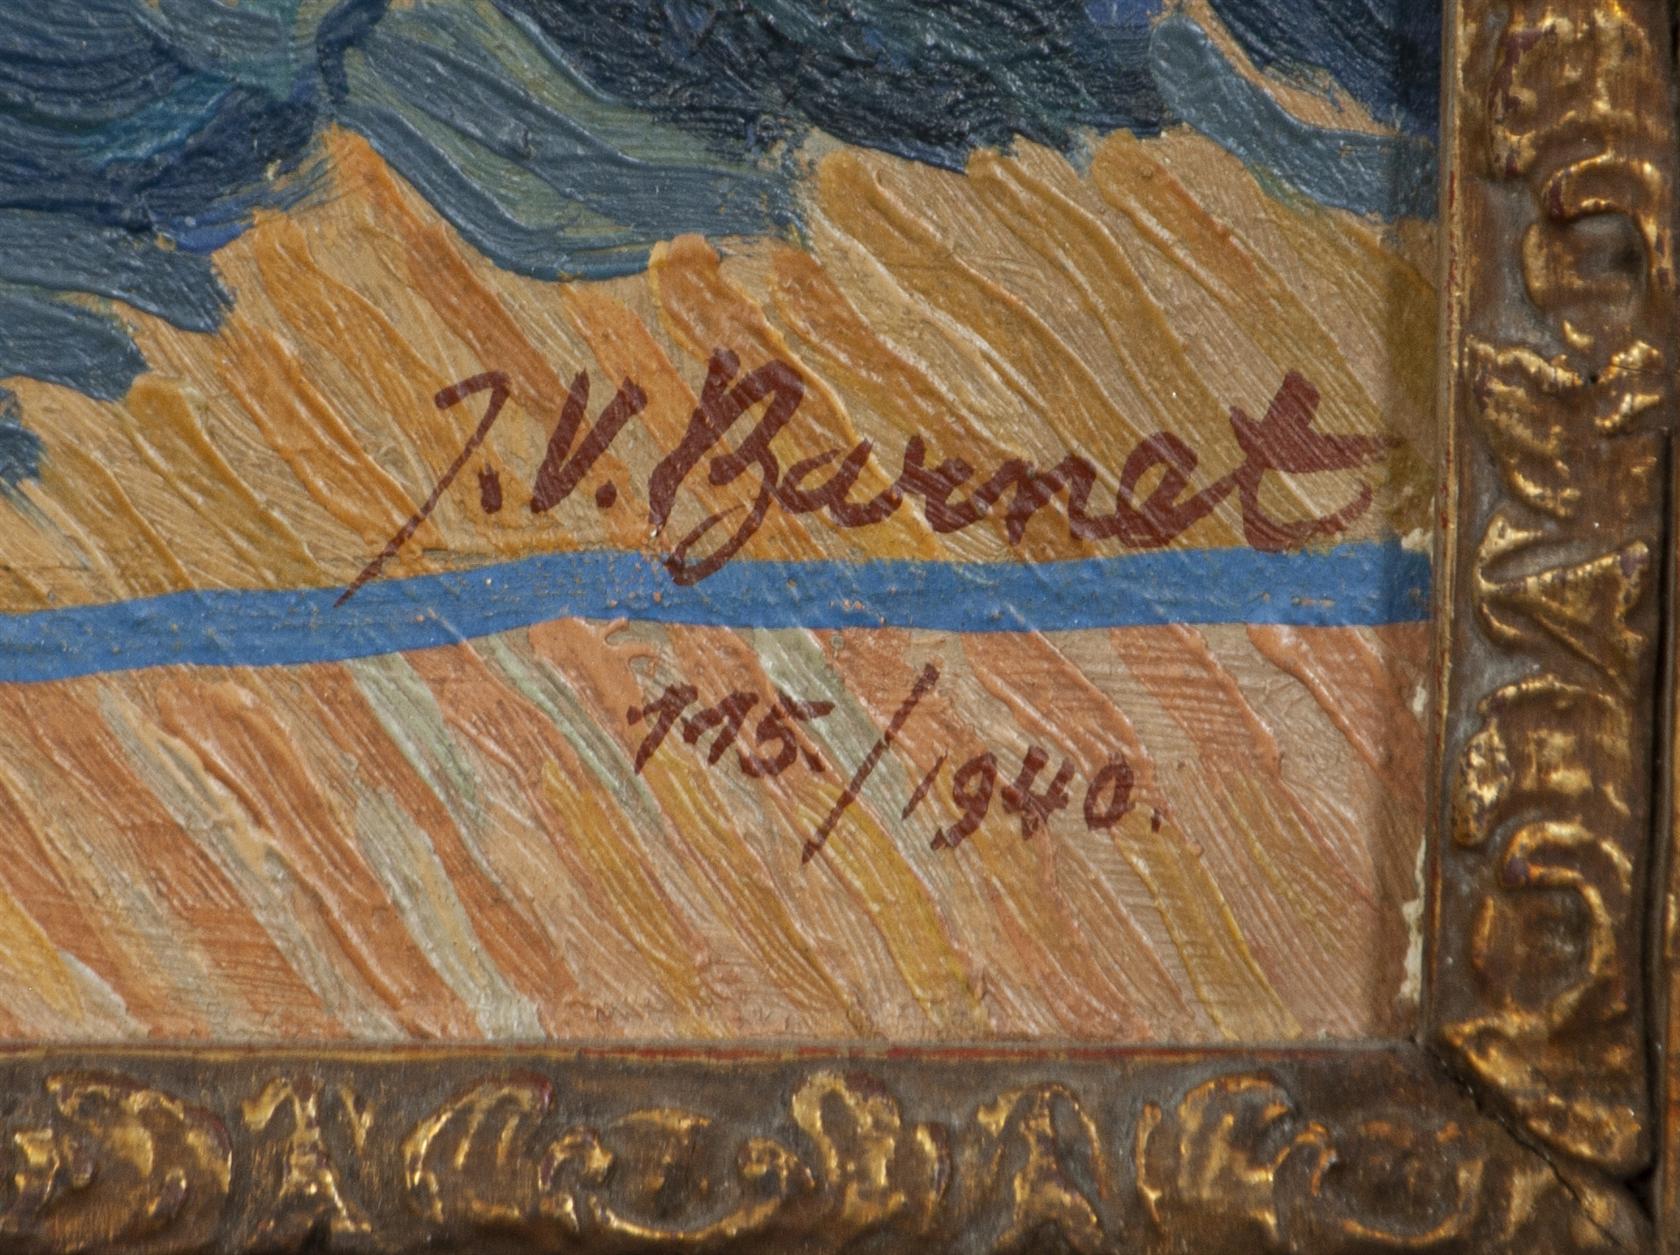 J.V. Barnet
115./1940.